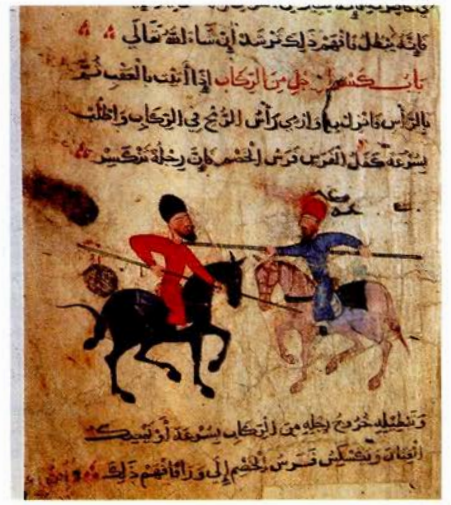 فإنه يبطل فافهم ذلك ترشد إن شاء الله تعالى
باب كسر رجل من الركاب إذا أتيت بالعقب ثم
بالرأس فانزل به وارمي رأس الرمح في الركاب واطلب
بسرعة كفل الفرس فرس الخصم فإن رجله تنكسر
وتبطيله خروج رجله من الركاب بسرعة أو يمسك
العنان ويكبس فرس الخصم إلى ورا فافهم ذلك